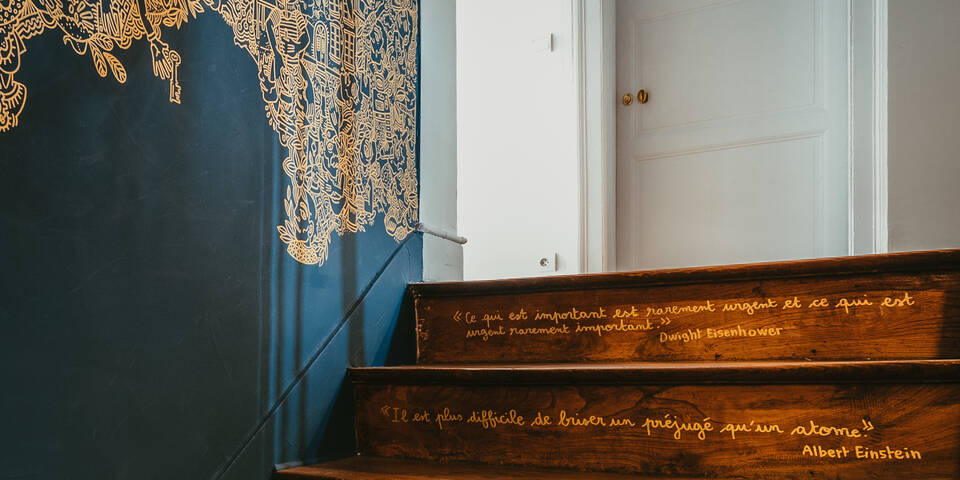 «Ce qui est important est rarement urgent et ce qui est
urgent rarement important.»
Dwight Eisenhower
«Il est plus difficile de briser un préjugé qu'un atome.»
Albert Einstein